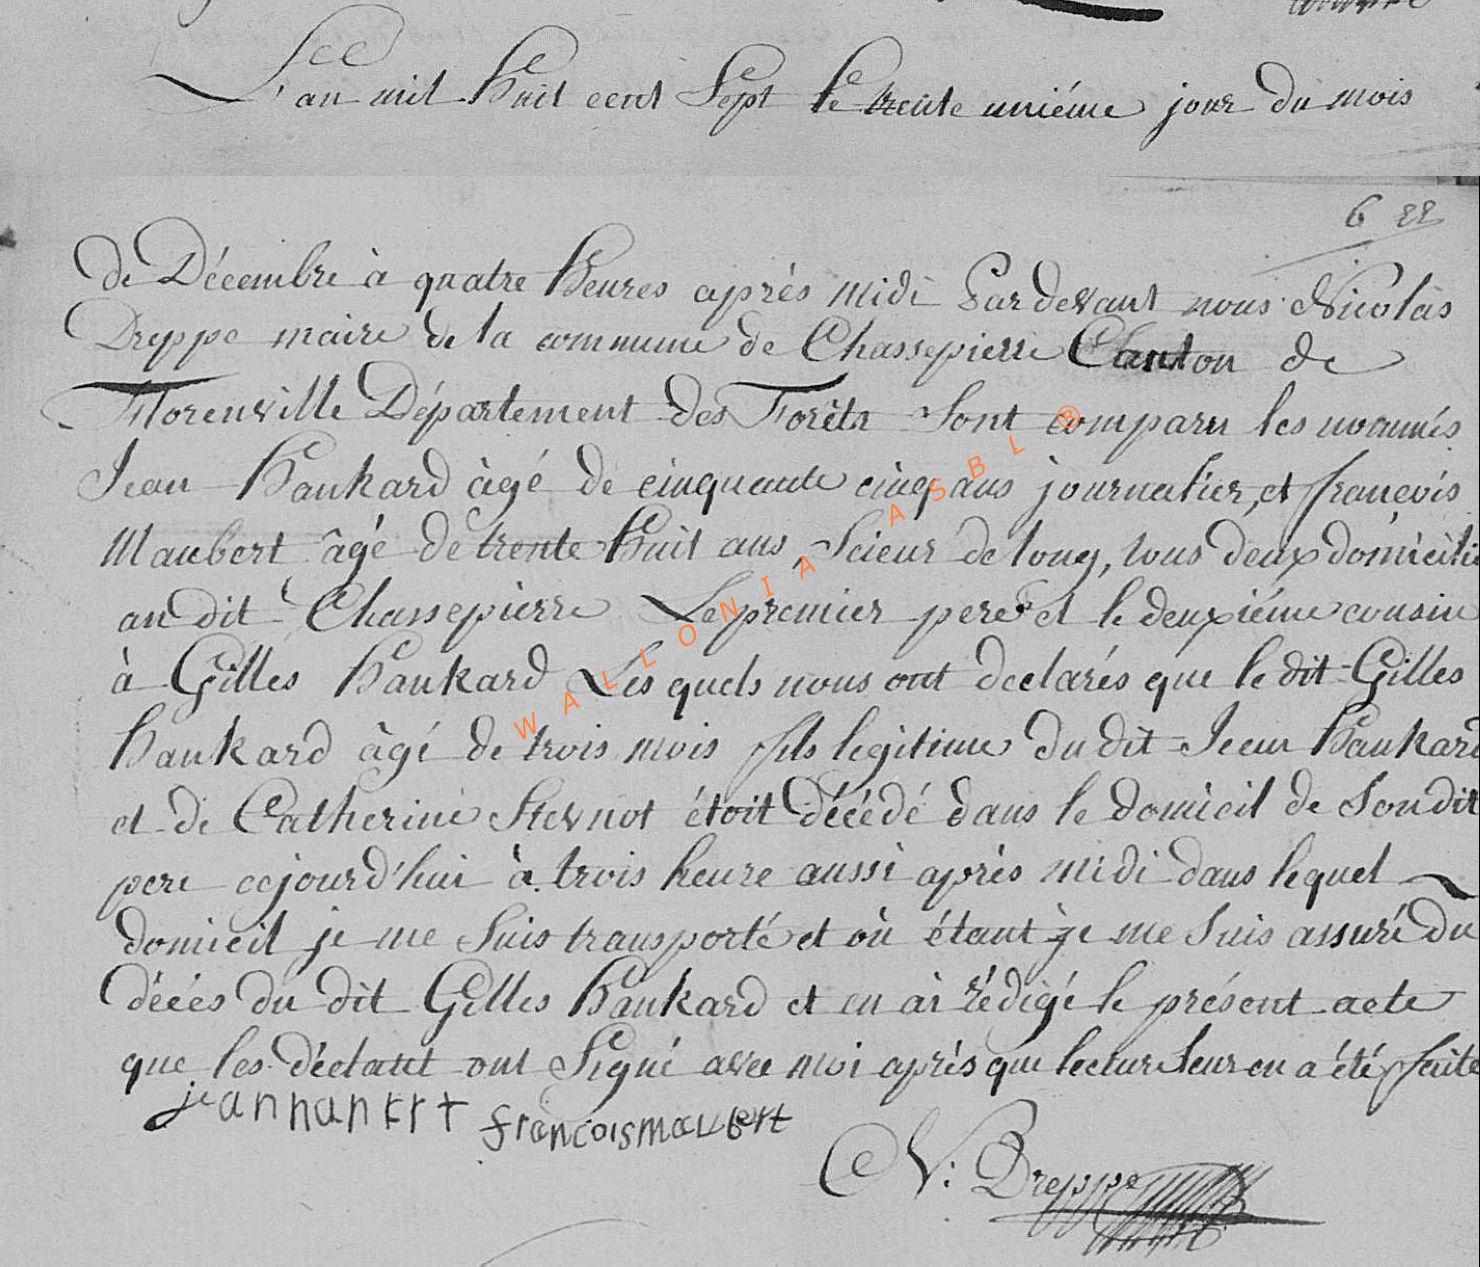 L'an mil huit cent Sept le trente uniéme jour du mois
6
de Décembre à quatre heures après midi Pardevant nous Nicolas
Dreppe maire de la commune de Chassepierre Canton de
Florenville Département des Forêts Sont comparu les nommés
Jean hankard âgé de cinquante cinq ans journalier, et françois
Maubert âgé de trente huit ans, Scieur de long, tous deux domicilié
au dit Chassepierre Le premier pere et le deuxiéme cousin
à Gilles hankard Les quels nous ont declarés que le dit Gilles
hankard âgé de trois mois fils legitime du dit Jean hankard
et de Catherine Stevnot étoit décédé dans le domicil de Son dit
pere cejourd'hui à trois heure aussi après midi dans lequel
domicil je me Suis transporté et où étant je me Suis assuré du
décés du dit Gilles hankard et en ai rédigé le présent acte
que les déclatit ont Signé avec moi après que lecture leur en a été faite
jean hankrt francois maubert
N: Dreppe
WALLONIA ASBL ®